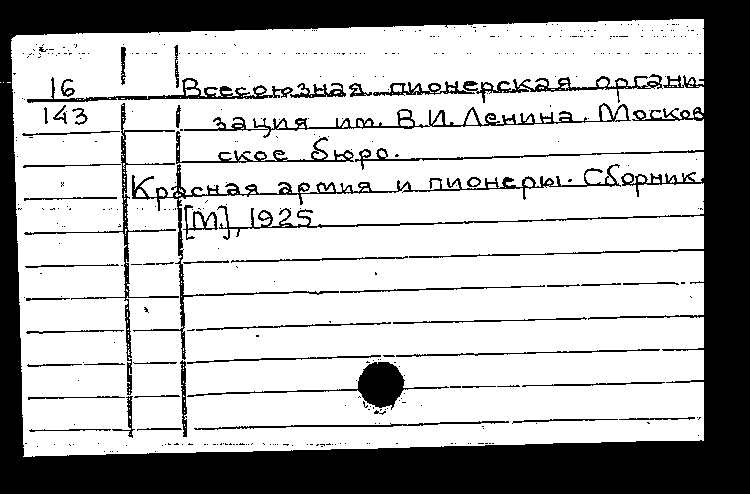 16 Всесоюзная пионерская органи-
143 зация им. В.И. Ленина. Москов
ское бюро.
Красная армия и пионеры. Сборник.
[М.], 1925.